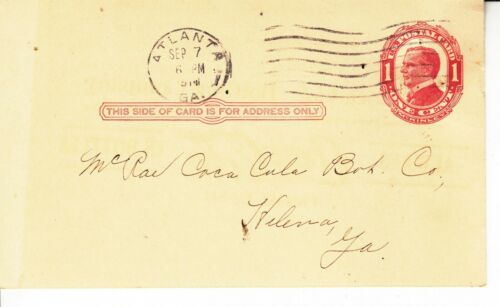 ATLANTA
SEP 7
6 PM
GA.
U.S. POSTAL CARD
1 1
ONE CENT
McKINLEY
THIS SIDE OF CARD IS FOR ADDRESS ONLY
McRae Coca Cola Bot. Co,
Helena,
Ga.